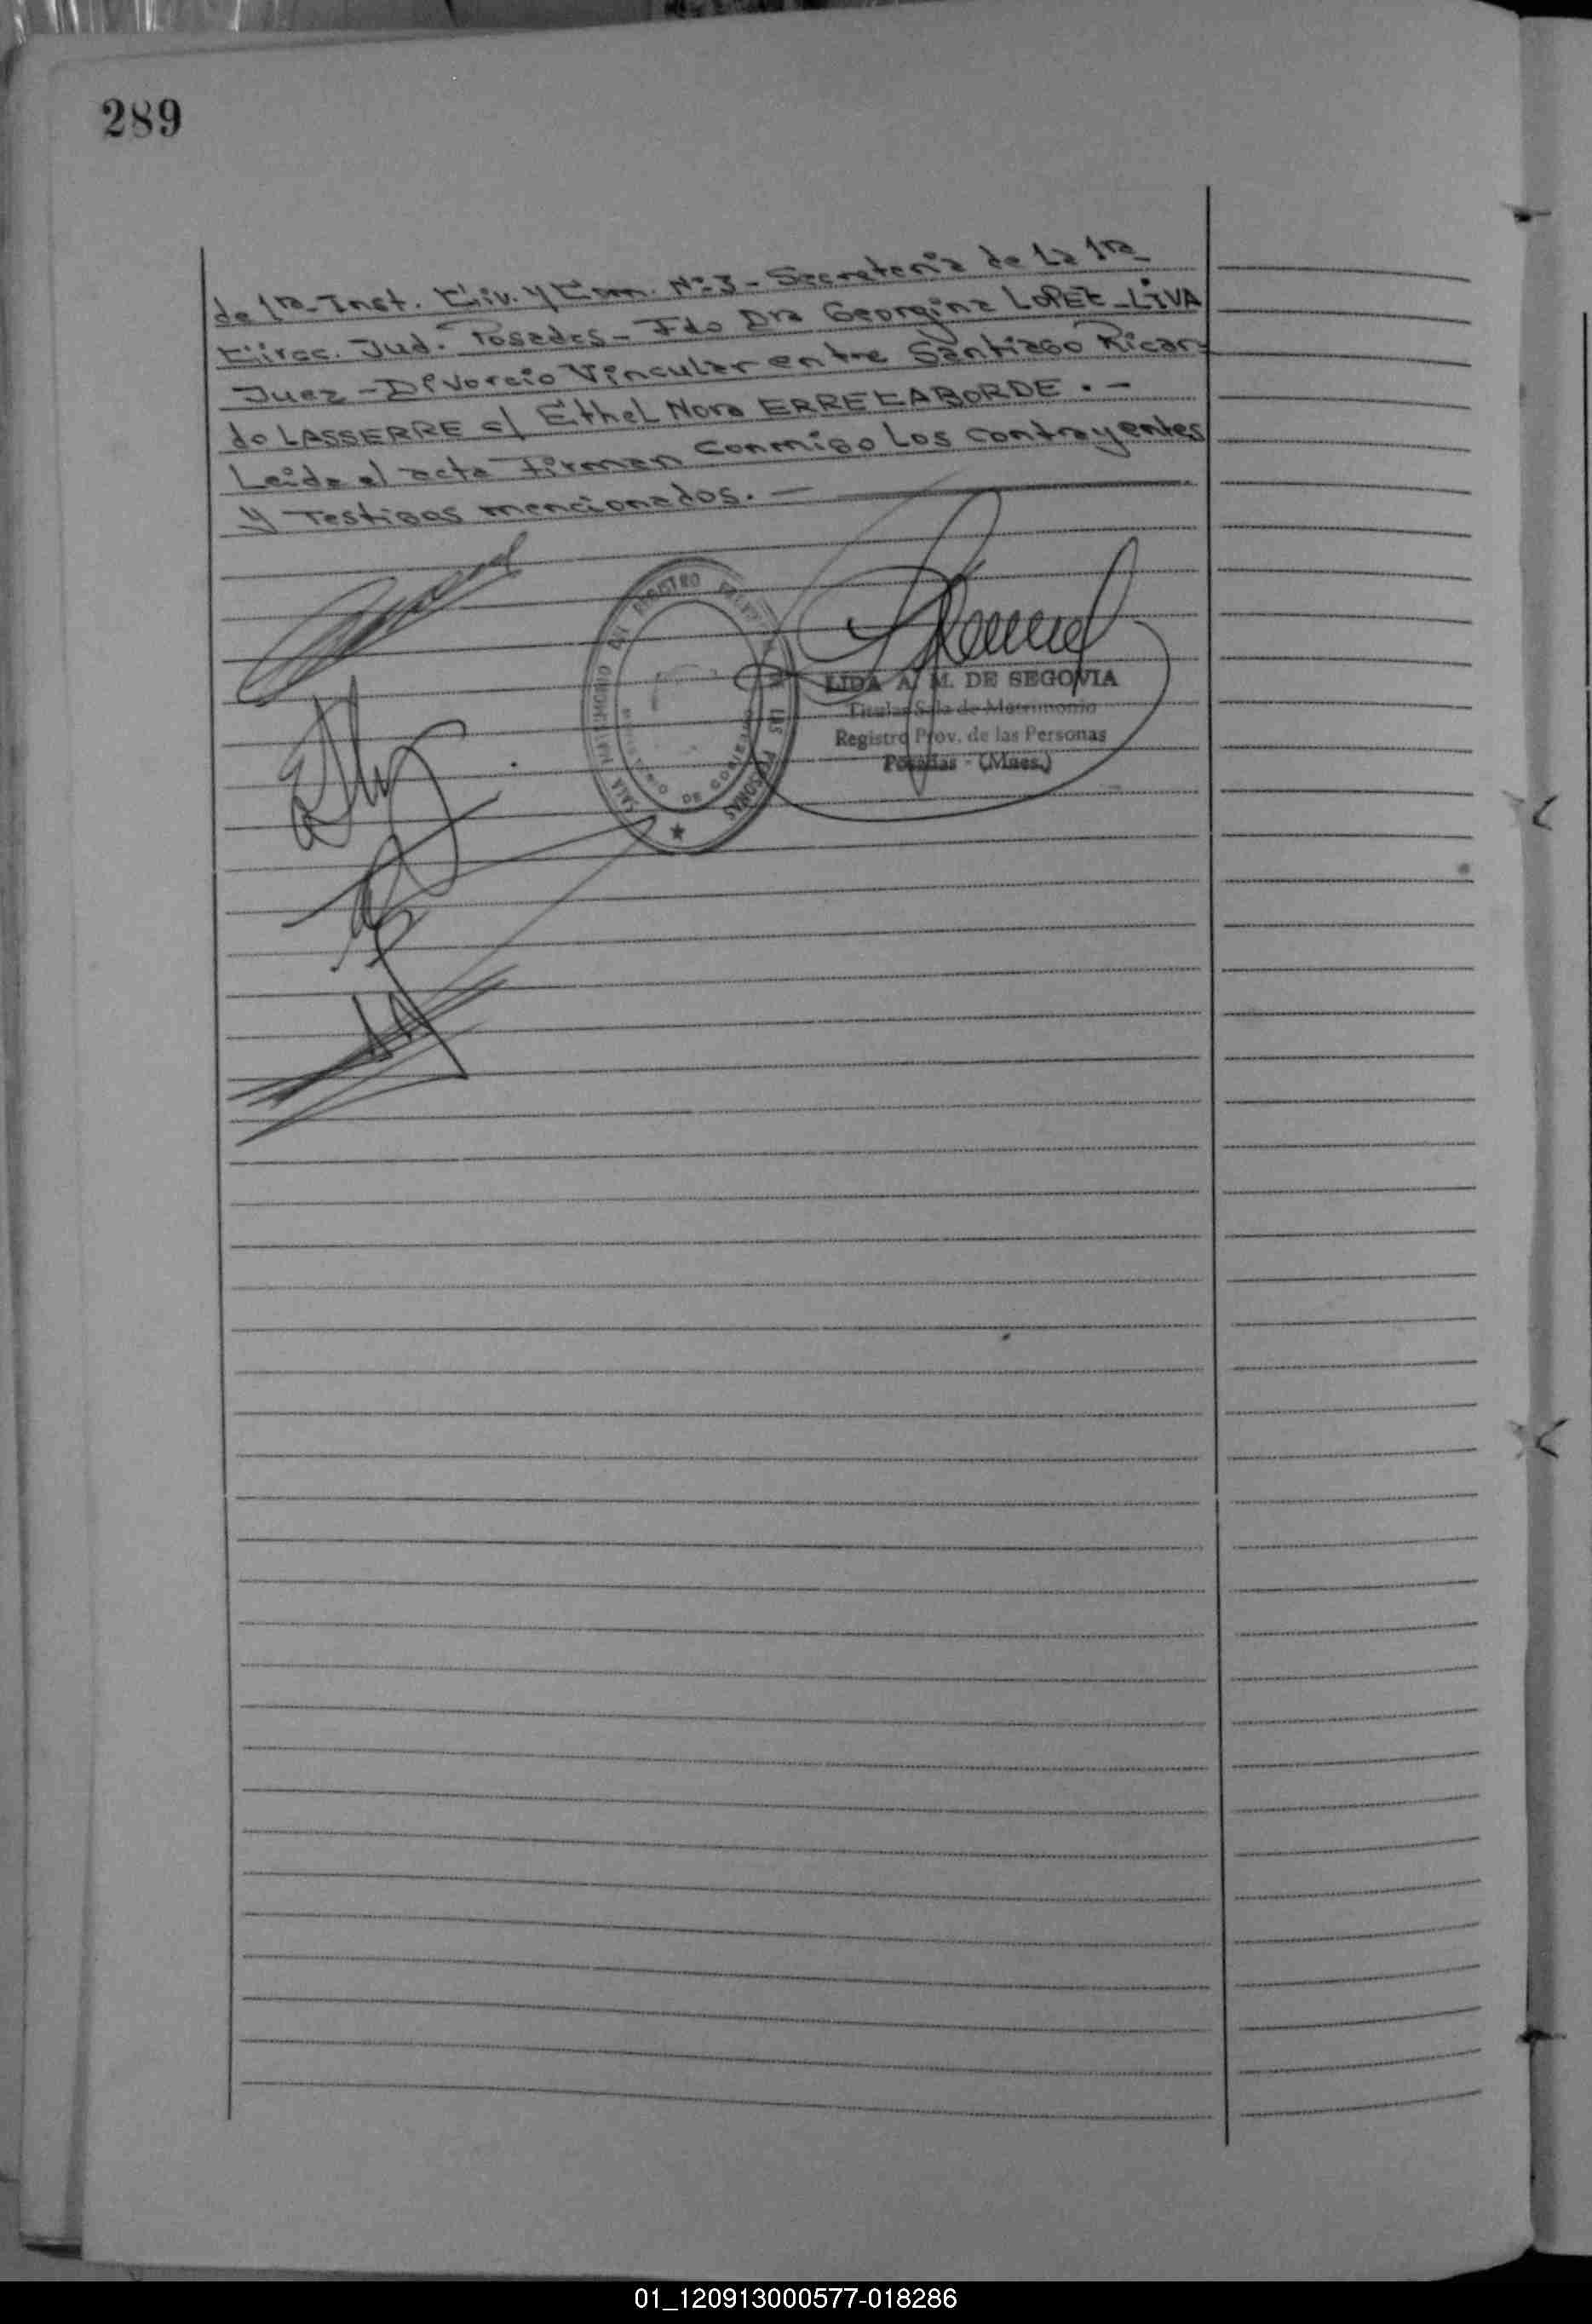 289
de 1ra Inst. Civ. y Com. Nº 3 - Secretaria de La 1ra
Circc. Jud. Posadas - Fdo Dra Georgina LOPEZ - LIVA
Juez - Divorcio Vincular entre Santiago Ricar-
do LASSERRE c/ Ethel Nora ERRECABORDE. -
Leida el acta Firman Conmigo Los contrayentes
y Testigos mencionados. -
SALA MATRIMONIO REGISTRO LAS PERSONAS
MINISTERIO DE GOBIERNO
LIDA A. M. DE SEGOVIA
Titular Sala de Matrimonio
Registro Prov. de las Personas
Posadas - (Mnes.)
01_120913000577-018286